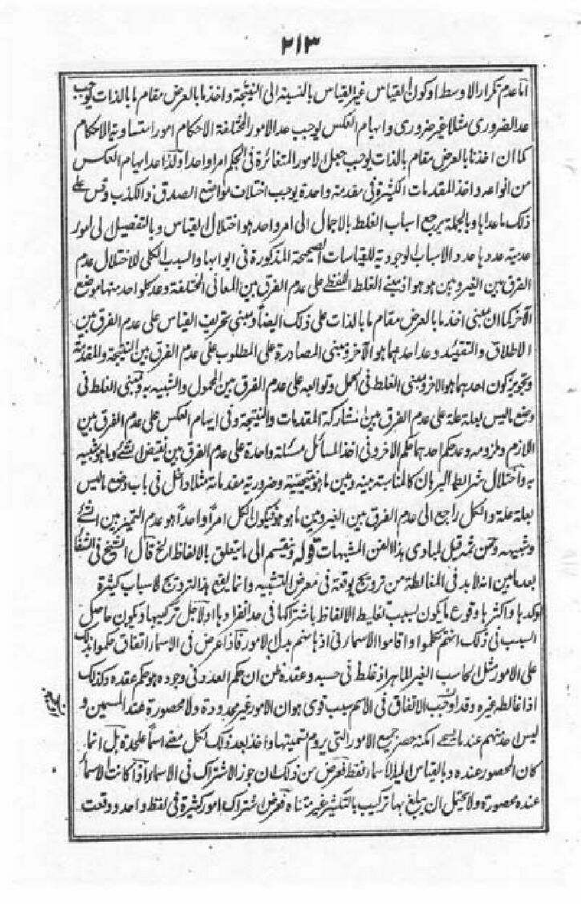 ٢١٣
اما عدم تكرار الاوسط او كون القياس غير القياس بالنسبة الى النتيجة واخذ ما بالعرض مقام ما بالذات يوجب
عد الضروري مثلا غير ضروري وايهام العكس يوجب عد الامور المختلفة الاحكام امورا متساوية الاحكام
كما ان اخذ ما بالعرض مقام ما بالذات يوجب جعل الامور المتغائرة في الحكم امرا واحدا ولذا عد ايهام العكس
من انواعه واخذ المقدمات الكثيرة في مقدمة واحدة يوجب اختلاف مواضع الصدق والكذب وقس على
ذلك ما عداها وبالجملة يرجع اسباب الغلط بالاجمال الى امر واحد هو اختلال القياس وبالتفصيل الى امور
عدمية عددها عدد الاسباب الوجودية للقياسات الصحيحة المذكورة في ابوابها والسبب الكلي للاختلال عدم
الفرق بين الغير وبين هو هو اذ مبنى الغلط اللفظي على عدم الفرق بين المعاني المختلفة وعد كل واحد منها موضع
الآخر كما ان مبنى اخذ ما بالعرض مقام ما بالذات على ذلك ايضا ومبنى تحريف القياس على عدم الفرق بين
الاطلاق والتقييد وعد احدهما هو الآخر ومبنى المصادرة على المطلوب على عدم الفرق بين النتيجة والمقدمة
وتجويز كون احدهما هو الآخر ومبنى الغلط في الحمل وتوابعه على عدم الفرق بين المحمول والشبيه به ومبنى الغلط في
وضع ما ليس بعلة علة على عدم الفرق بين مشاركة المقدمات والنتيجة وفي ايهام العكس على عدم الفرق بين
اللازم وملزومه وعد حكم احدهما حكم الآخر وفي اخذ المسائل مسئلة واحدة على عدم الفرق بين نقيض الشئ وما هو شبيه
به واختلال شرائط البرهان كالمناسبة بينه وبين ما هو نتيجته وضرورية مقدماته مثلا داخل في باب وضع ما ليس
بعلة علة والكل راجع الى عدم الفرق بين الغير وبين ما هو هو فيكون الكل امرا واحدا هو عدم التمييز بين الشئ
وشبيهه ومن ثمه قيل لمبادي هذا الفن المشبهات قوله وينقسم الى ما يتعلق بالالفاظ الخ قال الشيخ في الشفا
بعد ما بين انه لابد في المغالطة من ترويج يوقعه في معرض التشبيه وانما يقع هذا الترويج لاسباب كثيرة
اوكدها واكثرها وقوعا ما يكون بسبب تغليط الالفاظ باشتراكها في حد انفرادها او لاجل تركيبها ويكون حاصل
السبب في ذلك انهم تكلموا واقاموا الاسماء في اذهانهم بدل الامور فاذا عرض في الاسماء اتفاق حكموا بذلك
على الامور مثل الحاسب الغير الماهر اذا غلط في حسبه وعقده ظن ان حكم العدد في وجوده هو حكم عقده وكذلك
اذا غالطه غيره وقد اوجب الاتفاق في الاسم سبب قوي هو ان الامور غير محدودة ولا محصورة عند المسمين و
ليس احد منهم عند ما يسمى امكنه حصر جميع الامور التي يروم تسميتها واخذ بعد ذلك لكل معنى اسما على حدة بل انما
كان المحصور عنده وبالقياس اليه الاسماء فقط فعرض من ذلك ان جوز الاشتراك في الاسماء اذ كانت الاسماء
عنده محصورة ولا يحتمل ان يبلغ بها تركيب بالتكثير غير متناه فعرض اشتراك امور كثيرة في لفظ واحد ووقعت